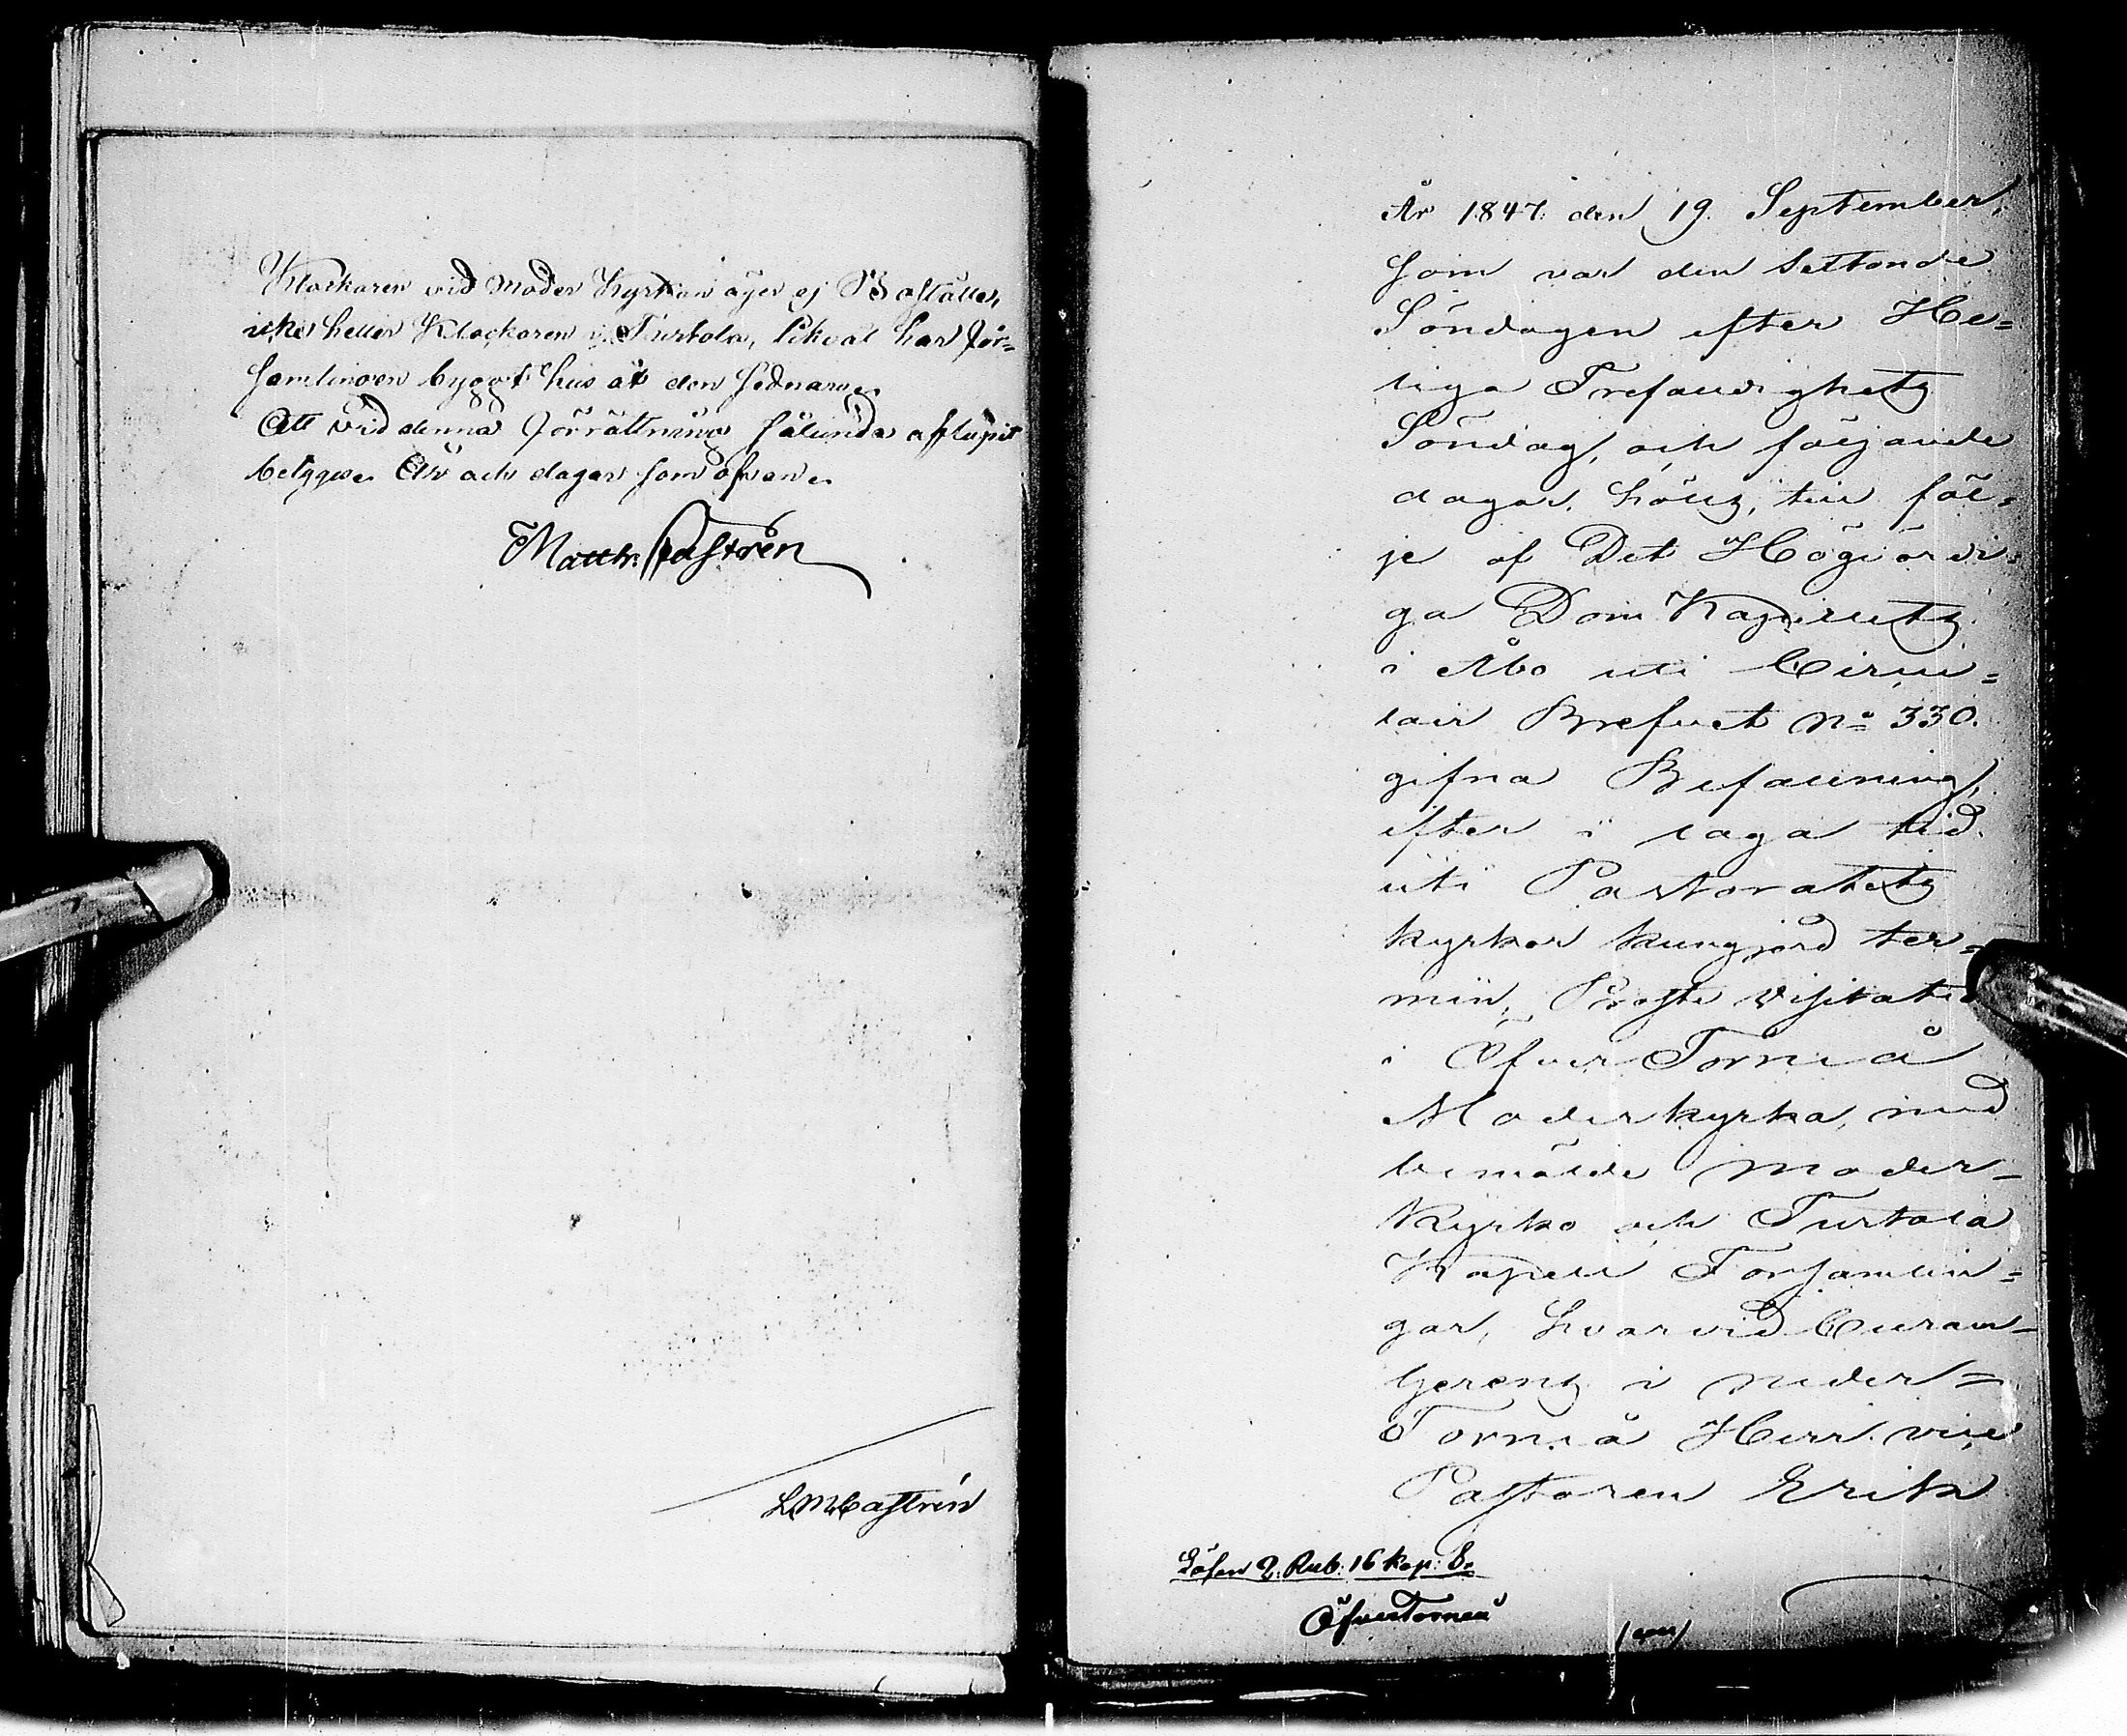 Klockaren vid Moder Kyrkan äger ej Boställe,
icke heller Klockaren i Turtola, likväl har för-
samlingen byggt hus åt den sednare.
Att vid denna förrättning sålunda aflupit
betygar. År och dagar som ofvan.
Matth. Castrén
LMCastrén
År 1847. den 19. September,
som var den sextonde
Söndagen efter He=
liga Trefaldighets
Söndag, och följande
dagar, hölls, till föl=
je af Det Högvördi=
ga Dom Kapitlets
i Åbo uti Circu=
lair Brefvet No 330.
gifna Befallning,
efter i laga tid
uti Pastoratets
kyrkor kungjord ter=
min, Proste Visitation
i Öfver Torneå
Moderkyrka, med
bemälde Moder-
Kyrko och Turtola
Kapell Församlin=
gar, hvarvid Curam
Gerens i Neder=
Torneå Herr Vice
Pastoren Erik
Lösen 2. Rub. 16 kop: S.
ÖfverTorneå